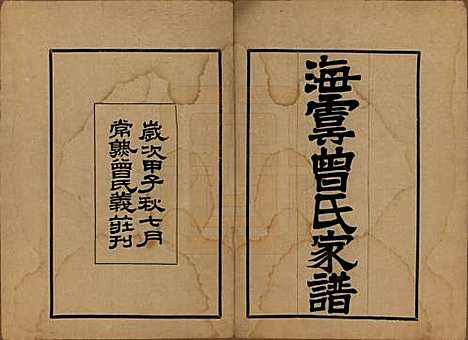 海虞曾氏家譜
歲次甲子秋七月
常熟曾氏義莊刊